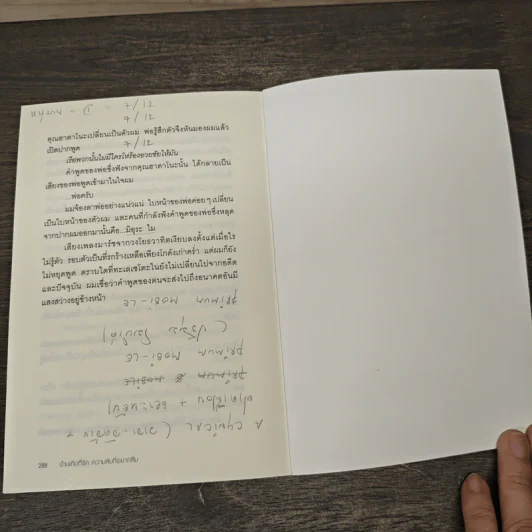 7/12
7/12
คุณฮาดาโนะเปลี่ยนเป็นตัวผม พ่อรู้สึกตัวจึงหันมองผมแล้ว
เปิดปากพูด
7/12
เรือพวกนั้นไม่มีใครโห่ร้องอวยชัยให้มัน
คำพูดของพ่อซึ่งฟังจากคุณฮาดาโนะนั้น ได้กลายเป็น
เสียงของพ่อพูดเข้ามาในใจผม
...พ่อครับ
ผมจ้องตาพ่ออย่างแน่วแน่ ใบหน้าของพ่อค่อยๆ เปลี่ยน
เป็นใบหน้าของตัวผม และคนที่กำลังฟังคำพูดของพ่อซึ่งหลุด
จากปากผมออกมานั้นคือ...มิฮุระ ไม
เสียงเพลงมาร์ชจากวงโยธวาทิตเงียบลงตั้งแต่เมื่อไร
ไม่รู้ตัว รอบตัวเป็นที่รกร้างเหลือเพียงโกดังเก่าคร่ำ แต่ผมก็ยัง
ไม่หยุดพูด ตราบใดที่ทะเลเซโตะในยังไม่เปลี่ยนไปจากอดีต
และปัจจุบัน ผมเชื่อว่าคำพูดของตนจะส่งไปถึงอนาคตอันมี
แสงสว่างอยู่ข้างหน้า
primum mobi-le
primum mobi-le
primum mobile
A cynical
286 บ้านเกิดที่รัก ความลับที่อยากลืม